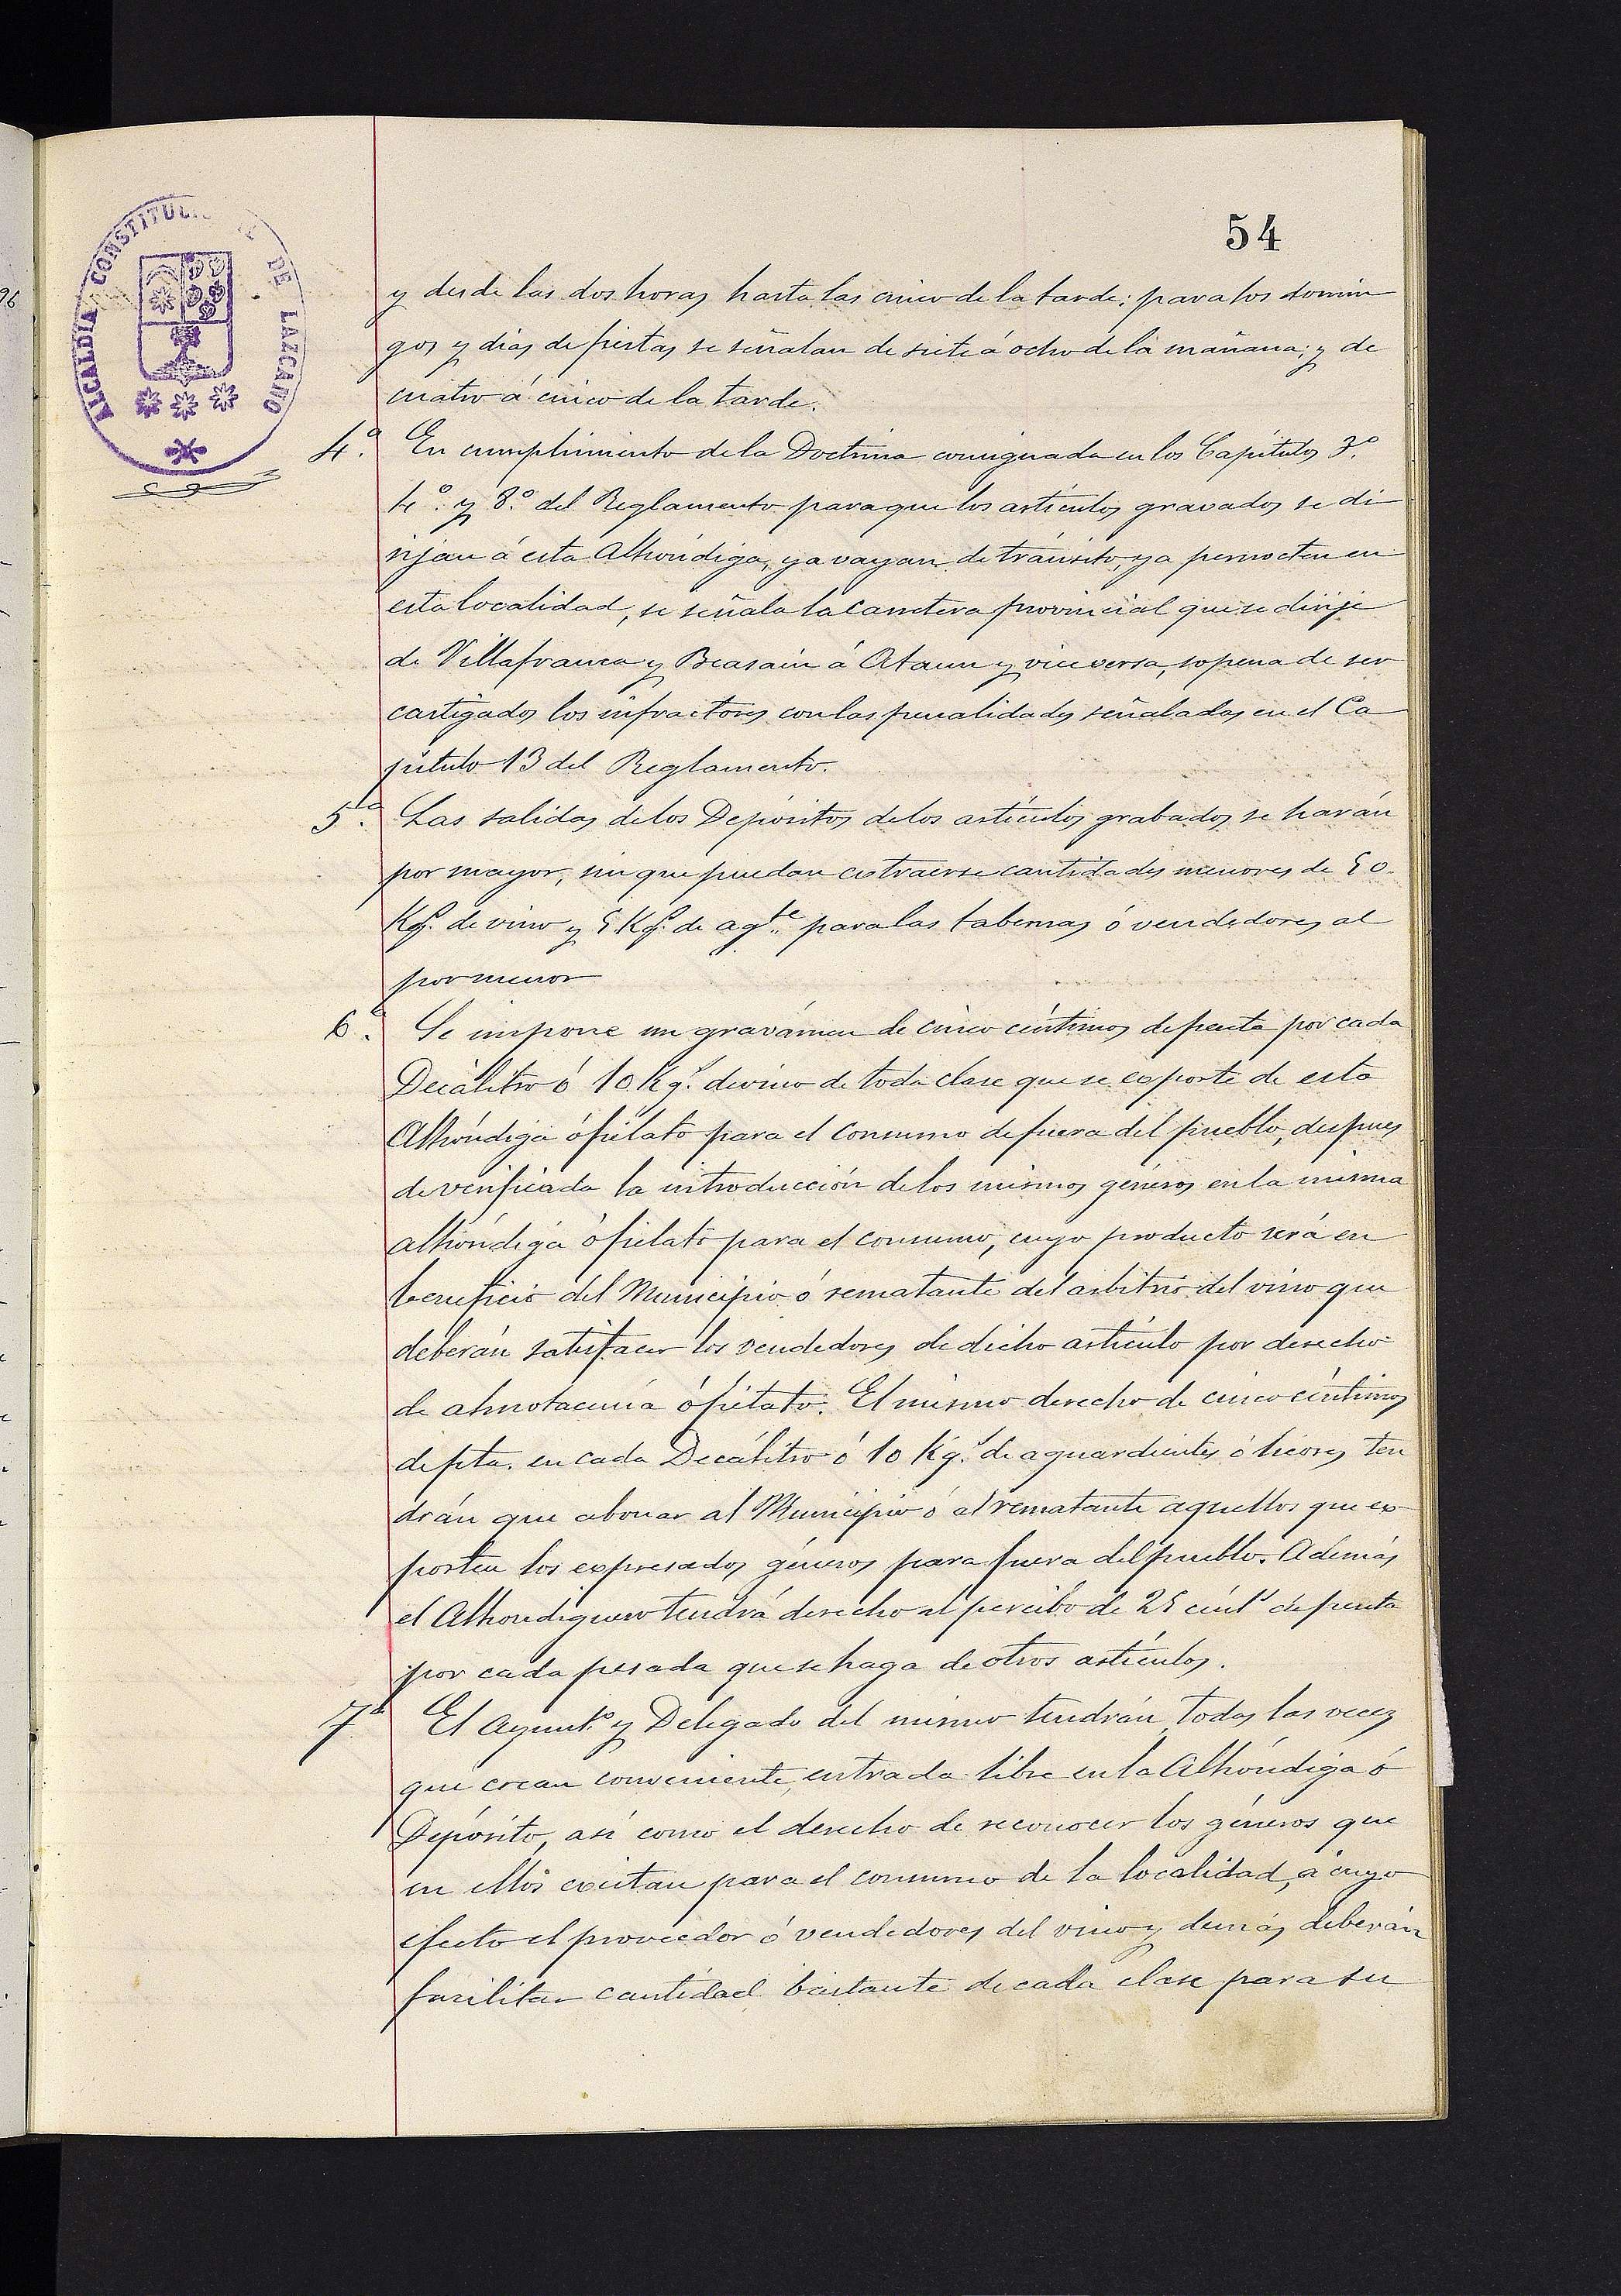 54
ALCALDIA CONSTITUCI DE LAZCANO
96
y desde las dos horas hasta las cinco de la tarde: para los domin
gos y dias de fiestas se señalan de siete á ocho de la mañana; y de
cuatro á cinco de la tarde.
4.ª En cumplimiento de la Doctrina consignada en los Capítulos 3.º
4.º y 8.º del Reglamento para que los artículos gravados se di
rijan á esta Alhóndiga, ya vayan de tránsito, ya pernocten en
esta localidad, se señala la carretera provincial que se dirije
de Villafranca y Beasain á Ataun y vice versa, so pena de ser
castigados los infractores con las penalidades señaladas en el Ca
pítulo 13 del Reglamento.
5.ª Las salidas de los Depósitos de los artículos grabados, se harán
por mayor, sin que puedan estraerse cantidades menores de 50.
Kgs. de vino y 5 Kgs. de agte. para las tabernas ó vendedores al
por menor
6.ª Se impone un gravámen de cinco céntimos de peseta por cada
Decálitro ó 10 Kgs. de vino de toda clase que se esporte de esta
Alhóndiga ó fielato para el consumo de fuera del pueblo, despues
de verificada la introducción de los mismos géneros en la misma
alhóndiga ó fielato para el consumo, cuyo producto será en
beneficio del Municipio ó rematante del arbitrio del vino que
deberán satisfacer los vendedores de dicho artículo por derecho
de almotacenía ó fielato. El mismo derecho de cinco céntimos
de pta. en cada Decálitro ó 10 Kgs. de aguardientes ó licores ten
drán que abonar al Municipio ó al rematante aquellos que ex
porten los expresados géneros para fuera del pueblo. Además
el Alhondiguero tendrá derecho al percibo de 25 cénts de peseta
por cada pesada que se haga de otros artículos.
7ª El Ayunto. y Delegado del mismo tendrán todas las veces
que crean conveniente, entrada libre en la Alhóndiga ó
Depósito, así como el derecho de reconocer los géneros que
en ellos existan para el consumo de la localidad, á cuyo
efecto el proveedor ó vendedores del vino y demás, deberán
facilitar cantidad bastante de cada clase para su